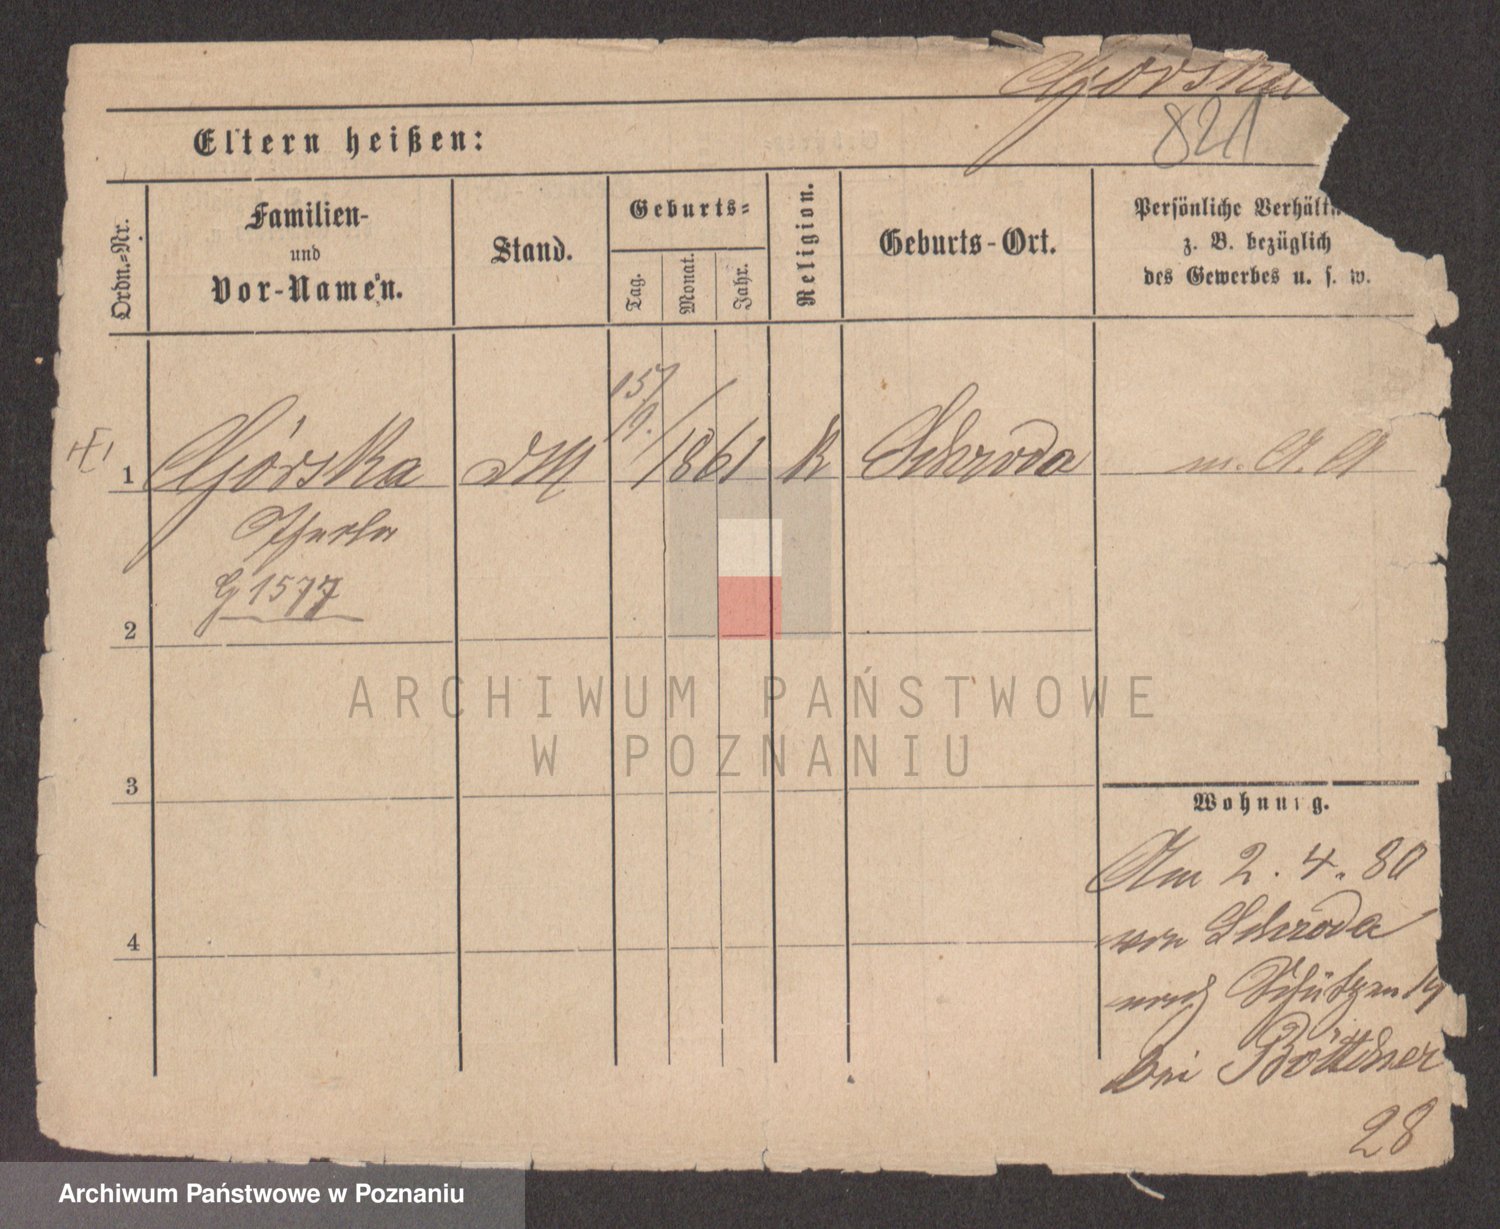 Górska
821
Eltern heißen:
Ordn.-Nr.
Familien-
und
Vor-Namen.
Stand.
Geburts-
Tag.
Monat.
Jahr.
Religion.
Geburts-Ort.
Persönliche Verhält
z. B. bezüglich
des Gewerbes u. s. w.
1 Górska dM 15/9. 1861 k Schroda m. A. A
Thecla
G 1577
2
3
4
Wohnung.
Am 2. 4. 80
von Schroda
nach Schützen 19
bei Böttcher
28
ARCHIWUM PAŃSTWOWE
W POZNANIU
Archiwum Państwowe w Poznaniu